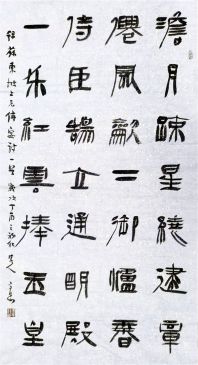 澹月疎星繞建章
僊風龡下御爐香
侍臣鵠立通明殿
一朵紅雲捧玉皇
蘇東坡上元侍宴詩一首 歲次丁酉之